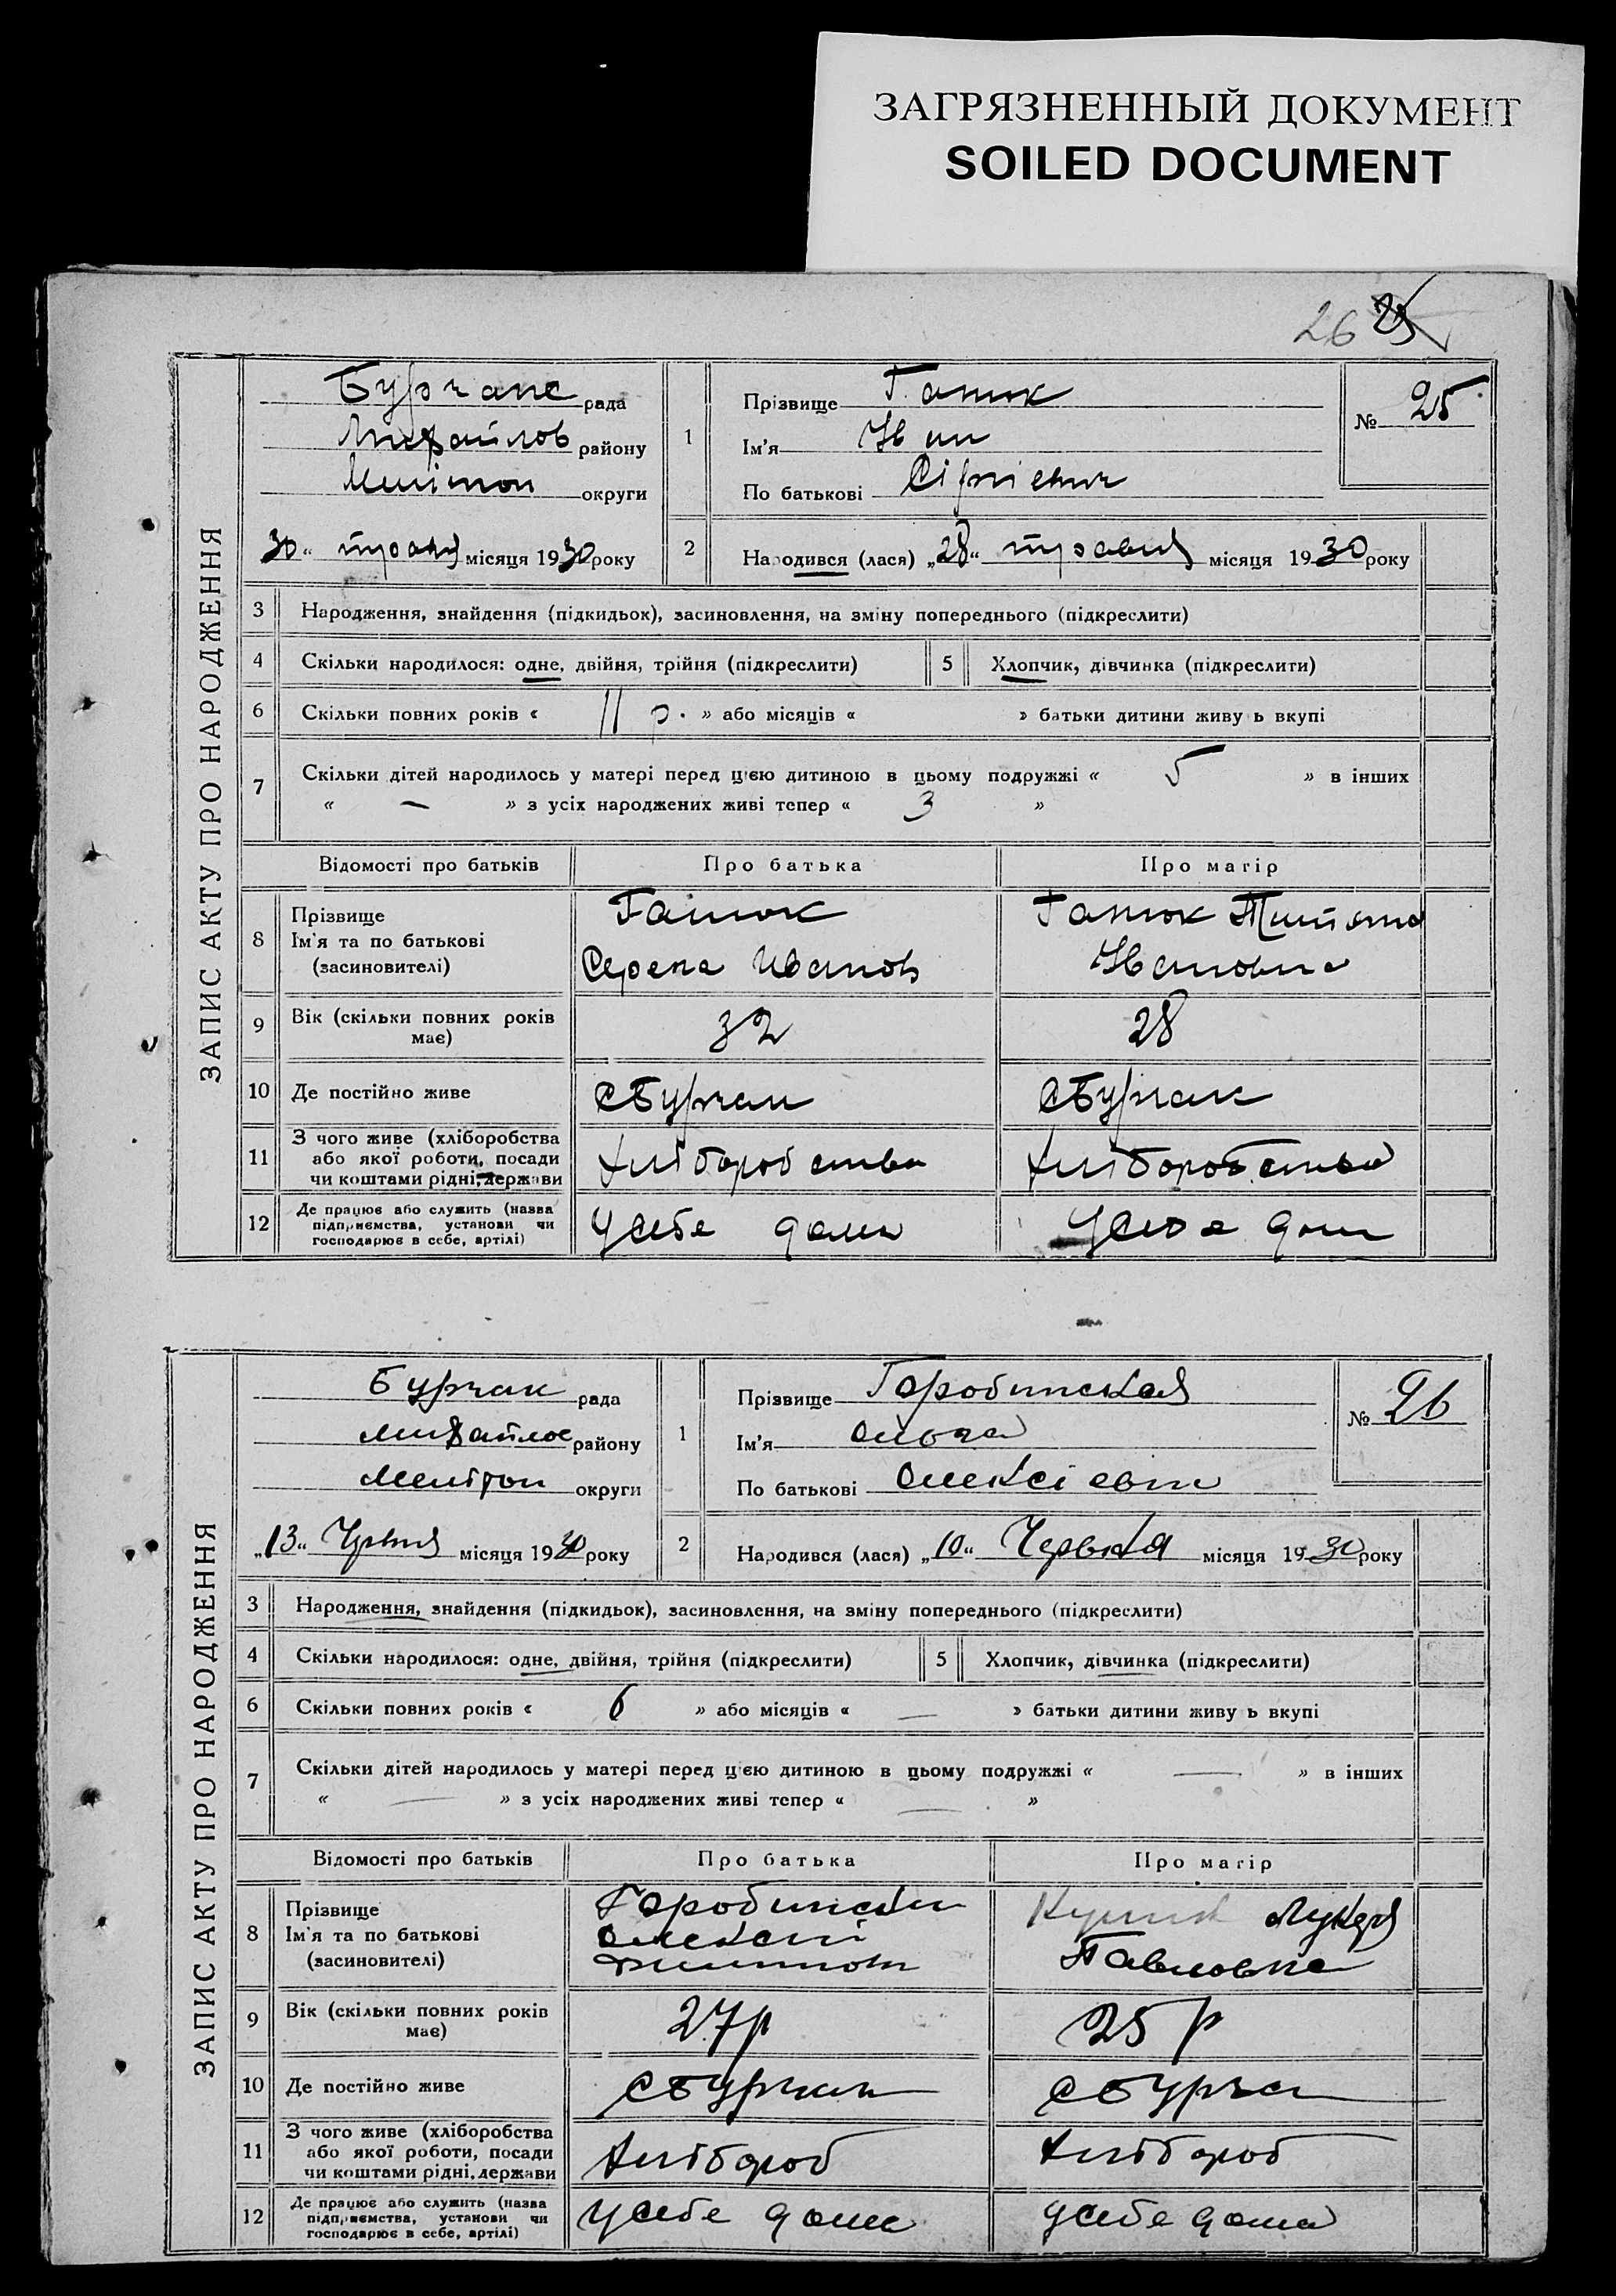 ЗАГРЯЗНЕННЫЙ ДОКУМЕНТ
SOILED DOCUMENT
26 25
ЗАПИС АКТУ ПРО НАРОДЖЕННЯ
Бурчанс рада
Михайлов району
Мелітоп округи
30 місяця 1930 року
1 Прізвище Ганюк
Ім'я Іван
По батькові Сіргієвич
№ 25
2 Народився (лася) „28“ травня місяця 1930 року
3 Народження, знайдення (підкидьок), засиновлення, на зміну попереднього (підкреслити)
4 Скільки народилося: одне, двійня, трійня (підкреслити) 5 Хлопчик, дівчинка (підкреслити)
6 Скільки повних років « 11 р. » або місяців « » батьки дитини живу ь вкупі
7 Скільки дітей народилось у матері перед цією дитиною в цьому подружжі « 5 » в інших
« – » з усіх народжених живі тепер « 3 »
Відомості про батьків Про батька Про матір
8 Прізвище
Ім'я та по батькові
(засиновителі)
Ганюк
Иванов
Ганюк
Ивановна
9 Вік (скільки повних років
має)
32 28
10 Де постійно живе с Бурчак с Бурчак
11 З чого живе (хліборобства
або якої роботи, посади
чи коштами рідні, держави
хліборобства хліборобства
12 Де працює або служить (назва
підприємства, установи чи
господарює в себе, артілі)
у себе дома у себе дома
ЗАПИС АКТУ ПРО НАРОДЖЕННЯ
Бурчак рада
Михайлов району
Мелітоп округи
„13“ Червня місяця 1930 року
1 Прізвище Горобинская
Ім'я Ольга
По батькові Олексієвна
№ 26
2 Народився (лася) „10“ Червня місяця 1930 року
3 Народження, знайдення (підкидьок), засиновлення, на зміну попереднього (підкреслити)
4 Скільки народилося: одне, двійня, трійня (підкреслити) 5 Хлопчик, дівчинка (підкреслити)
6 Скільки повних років « 6 » або місяців « — » батьки дитини живу ь вкупі
7 Скільки дітей народилось у матері перед цією дитиною в цьому подружжі « — » в інших
« — » з усіх народжених живі тепер « — »
Відомості про батьків Про батька Про матір
8 Прізвище
Ім'я та по батькові
(засиновителі)
Горобински
Олексій
Лукеря
Павловна
9 Вік (скільки повних років
має)
27 р 25 р
10 Де постійно живе с Бурчак с Бурча
11 З чого живе (хліборобства
або якої роботи, посади
чи коштами рідні, держави
хлібороб хлібороб
12 Де працює або служить (назва
підприємства, установи чи
господарює в себе, артілі)
у себе дома у себе дома